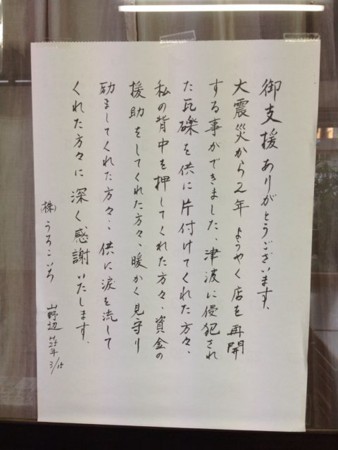 御支援ありがとうございます。
大震災から2年 ようやく店を再開
する事ができました、津波に侵犯され
た瓦礫を供に片付けてくれた方々、
私の背中を押してくれた方々、資金の
援助をしてくれた方々、暖かく見守り
励ましてくれた方々、供に涙を流して
くれた方々に深く感謝いたします。
(株)うろこいち
山野辺 H25年 3/15